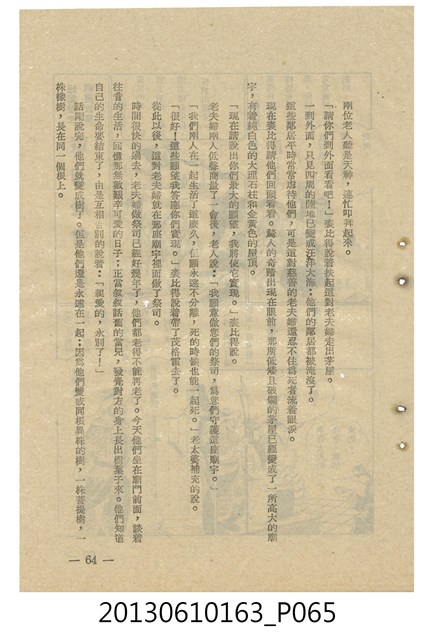 兩位老人聽是天神，連忙叩拜起來。
「請你們到外面看看吧！」裘比得說着扶起這對老夫婦走出茅屋。
一到外面，只見四周的陸地已變成汪洋大海；他們的鄰居都被淹沒了。
這些鄰居平時常常虐待他們，可是這對慈善的老夫婦還忍不住爲死者流着眼淚。
現在裘比得請他們回頭看看。驚人的奇蹟出現在眼前，那所低矮且破爛的茅屋已經變成了一所高大的廟
宇，有着純白色的大理石柱和金黃色的屋頂。
「現在請說出你們最大的願望，我將使它實現。」裘比得說。
老夫婦兩人低聲商量了一會後，老人說：「我願意做您們的祭司，爲您們守護這座廟宇。」
「我們兩人在一起生活了這麼久，但願永遠不分離，死的時候也能一起死。」老太婆補充的說。
「很好！這些願望我答應你們實現。」裘比得說着帶了茂格雷去了。
從此以後，這對老夫婦就在那座廟宇裡面做了祭司。
時間很快的過去，老夫婦做祭司已經好幾年了，他們都老得不能再老了。今天他們坐在廟門前面，談着
往昔的生活，回憶那無數艱辛可愛的日子；正當敘敘話舊的當兒，發覺對方的身上長出樹葉子來。他們知道
自己的生命要結束了，由是互相告別的說着：「親愛的，永別了！」
話剛說完，他們就變成樹了。但是他們還是永遠在一起；因爲他們變成同根異株的樹，一株菩提樹，一
株橡樹，長在同一個根上。
— 64 —
20130610163_P065